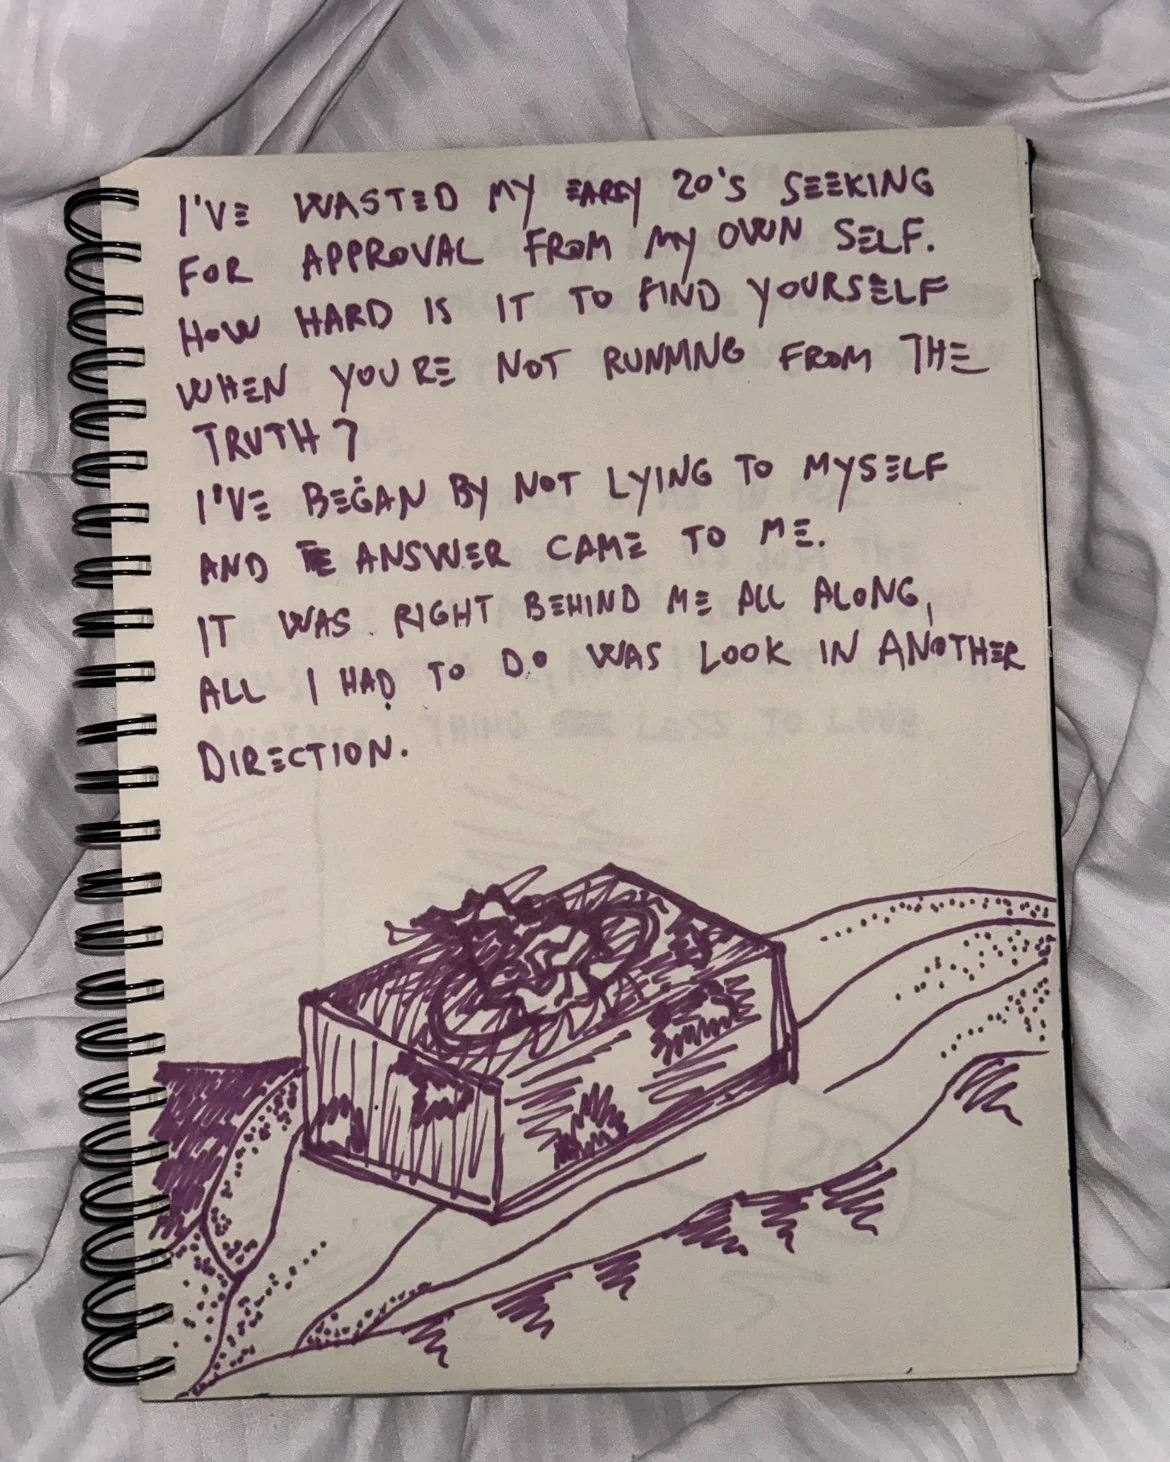 I'VE WASTED MY EARLY 20'S SEEKING
FOR APPROVAL FROM MY OWN SELF.
HOW HARD IS IT TO FIND YOURSELF
WHEN YOU'RE NOT RUNNING FROM THE
TRUTH?
I'VE BEGAN BY NOT LYING TO MYSELF
AND ANSWER CAME TO ME.
IT WAS RIGHT BEHIND ME ALL ALONG,
ALL I HAD TO DO WAS LOOK IN ANOTHER
DIRECTION.